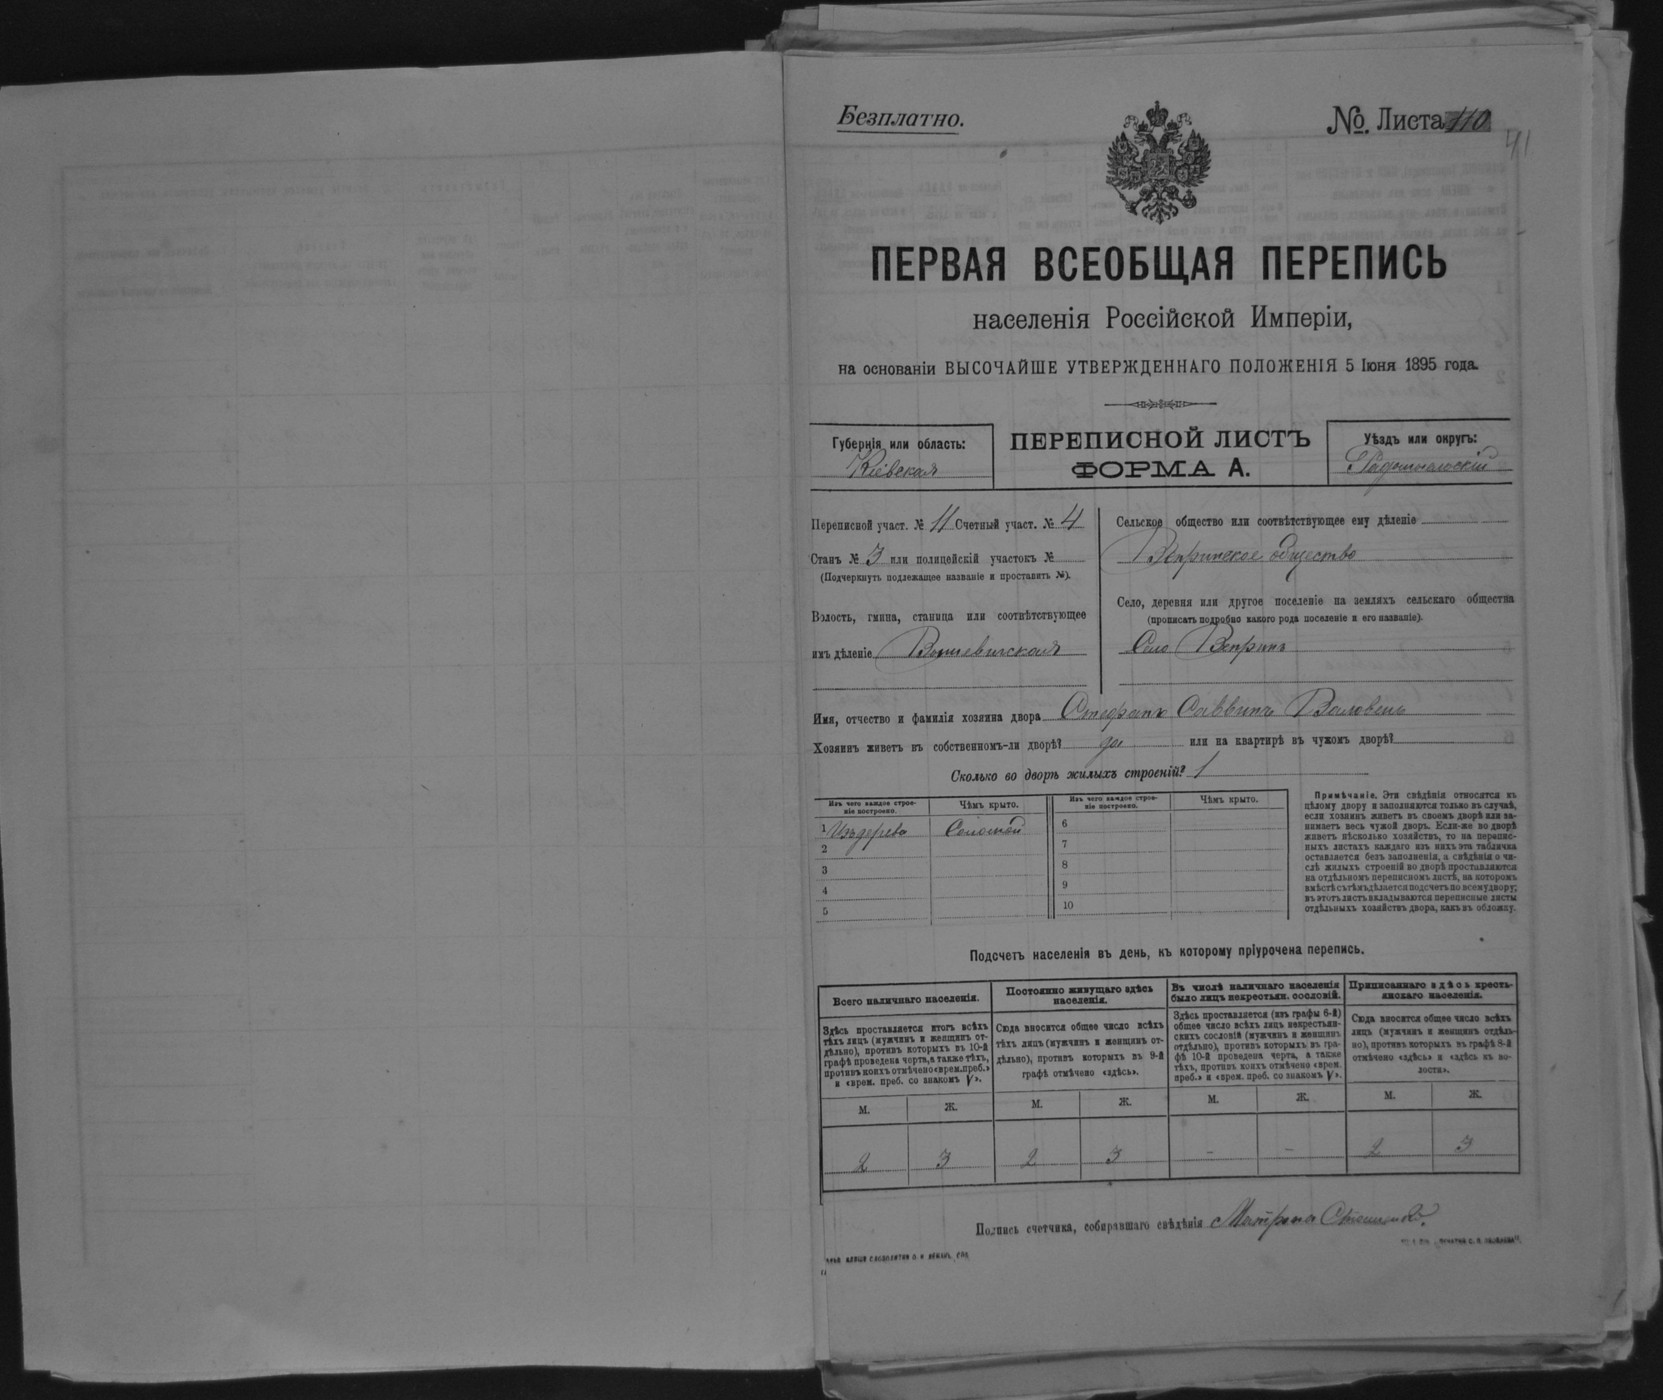 Безплатно.
№ Листа 110
41
ПЕРВАЯ ВСЕОБЩАЯ ПЕРЕПИСЬ
населенія Россійской Имперіи,
на основаніи ВЫСОЧАЙШЕ УТВЕРЖДЕННАГО ПОЛОЖЕНІЯ 5 Іюня 1895 года.
Губернія или область:
Кіевская
ПЕРЕПИСНОЙ ЛИСТЪ
ФОРМА А.
Уѣздъ или округъ:
Радомысльскій
Переписной участ. № 11 Счетный участ. № 4
Станъ № 3 или полицейскій участокъ №
(Подчеркнуть подлежащее названіе и проставить №).
Волость, гмина, станица или соотвѣтствующее
имъ дѣленіе Вышевичская
Сельское общество или соотвѣтствующее ему дѣленіе
Вепринское общество
Село, деревня или другое поселеніе на земляхъ сельскаго общества
(прописать подробно какого рода поселеніе и его названіе).
Село Вепринъ
Имя, отчество и фамилія хозяина двора Стефанъ Саввинъ Воловень
Хозяинъ живетъ въ собственномъ-ли дворѣ? да или на квартирѣ въ чужомъ дворѣ?
Сколько во дворѣ жилыхъ строеній? 1
Изъ чего каждое строе-
ніе построено.
Чѣмъ крыто.
Изъ чего каждое строе-
ніе построено.
Чѣмъ крыто.
1 Изъ дерева Соломой
2
3
4
5
6
7
8
9
10
Примѣчаніе. Эти свѣдѣнія относятся къ
цѣлому двору и заполняются только въ случаѣ,
если хозяинъ живетъ въ своемъ дворѣ или за-
нимаетъ весь чужой дворъ. Если-же во дворѣ
живетъ нѣсколько хозяйствъ, то на перепис-
ныхъ листахъ каждаго изъ нихъ эта табличка
оставляется безъ заполненія, а свѣдѣнія о чи-
слѣ жилыхъ строеній во дворѣ проставляются
на отдѣльномъ переписномъ листѣ, на которомъ
вмѣстѣ съ тѣмъ дѣлается подсчетъ по всему двору;
въ этотъ листъ вкладываются переписные листы
отдѣльныхъ хозяйствъ двора, какъ въ обложку.
Подсчетъ населенія въ день, къ которому пріурочена перепись.
Всего наличнаго населенія.
Здѣсь проставляется итогъ всѣхъ
тѣхъ лицъ (мужчинъ и женщинъ от-
дѣльно), противъ которыхъ въ 10-й
графѣ проведена черта, а также тѣхъ,
противъ коихъ отмѣчено «врем. преб.»
и «врем. преб. со знакомъ V».
Постоянно живущаго здѣсь
населенія.
Сюда вносится общее число всѣхъ
тѣхъ лицъ (мужчинъ и женщинъ от-
дѣльно), противъ которыхъ въ 9-й
графѣ отмѣчено «здѣсь».
Въ числѣ наличнаго населенія
было лицъ некрестьян. сословій.
Здѣсь проставляется (изъ графы 6-й)
общее число всѣхъ лицъ некрестьян-
скихъ сословій (мужчинъ и женщинъ
отдѣльно), противъ которыхъ въ гра-
фѣ 10-й проведена черта, а также
тѣхъ, противъ коихъ отмѣчено «врем.
преб.» и «врем. преб. со знакомъ V».
Приписаннаго здѣсь кресть-
янскаго населенія.
Сюда вносится общее число всѣхъ
лицъ (мужчинъ и женщинъ отдѣль-
но), противъ которыхъ въ графѣ 8-й
отмѣчено «здѣсь» и «здѣсь въ во-
лости».
М. Ж. М. Ж. М. Ж. М. Ж.
2 3 2 3 - - 2 3
Подпись счетчика, собиравшаго свѣдѣнія